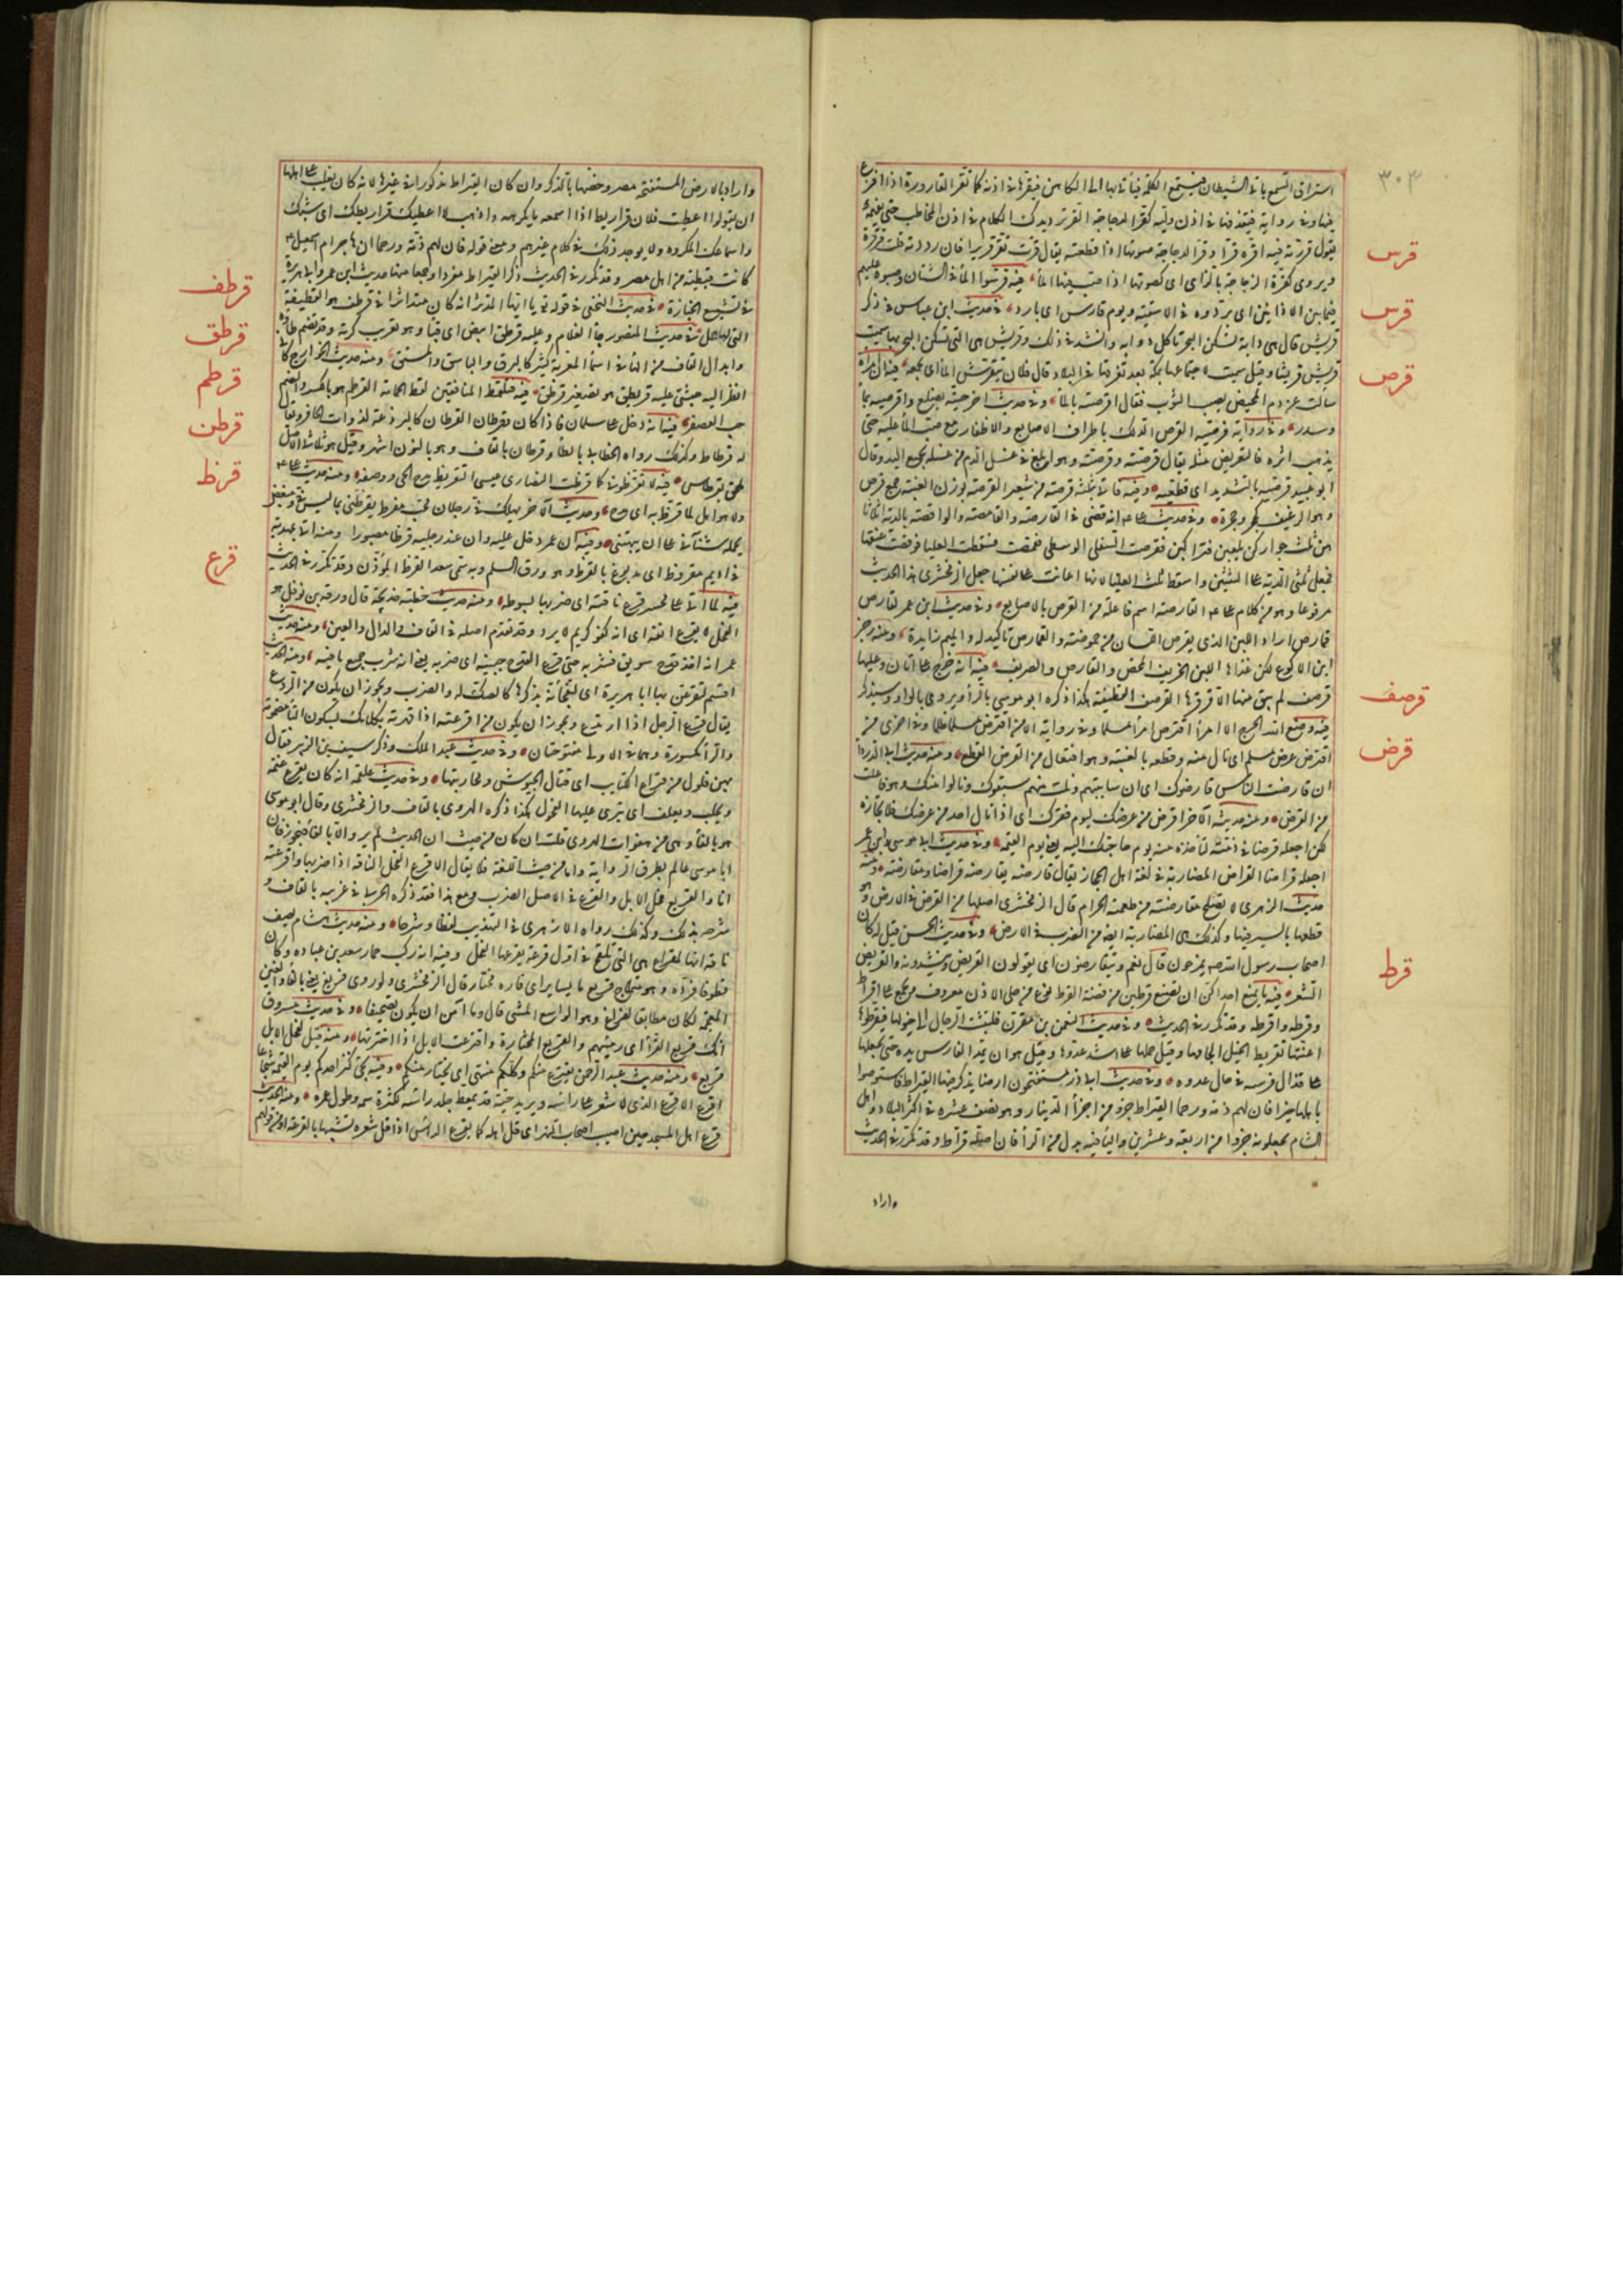 ٣٠٣
استراق السمع يأتي الشيطان فيتسمع الكلمة فيأتي بها الى الكاهن فيقرها في اذنه كما تقر القارورة اذا افرغ
فيها وفي رواية فيقذفها في اذن وليه كقر الدجاجة القر ترديدك الكلام في اذن المخاطب حتى يفهمه
يقول قررته فيه اقره قرا وقر الدجاجة صوتها اذا قطعته يقال قرت تقر قريرا فان رددته قلت قرقرة
ويروى كقر الزجاجة بالزاى اى كصوتها اذا صب فيها الماء فيه قرسوا الماء في الشنان وصبوه عليهم
قرس
فيما بين الاذانين اى بردوه في الاسقية ويوم قارس اى بارد في حديث ابن عباس في ذكر
قرش
قريش قال هى دابة تسكن البحر تأكل دوابه وانشد في ذلك وقريش هى التى تسكن البحر بها سميت
قريش قريشا وقيل سميت لاجتماعها بمكة بعد تفرقها في البلاد قال فلان يتقرش المال اى يجمعه فيه ان امرأة
قرص
سألت عن دم المحيض يصيب الثوب فقال اقرصيه بالماء وفي حديث اخر حتيه بضلع واقرصيه بماء
وسدر وفي رواية قرصيه القرص الدلك باطراف الاصابع والاظفار مع صب الماء عليه حتى
يذهب اثره فالتقريص مثله يقال قرصته وقرصته وهو ابلغ في غسل الدم من غسله بجميع اليد وقال
ابو عبيد قرصيه بالتشديد اى قطعيه وفيه فاتى بثلثة قرصة من شعير القرصة بوزن العنبة جمع قرص
وهو الرغيف كجحر وجحرة وفي حديث على انه قضى في القارصة والقامصة والواقصة بالدية اثلاثا
هن ثلث جوار كن يلعبن فتراكبن فقرصت السفلى الوسطى فقمصت فسقطت العليا فوقصت عنقها
فجعل ثلثى الدية على الثنتين واسقط ثلث العليا لانها اعانت على نفسها جعل الزمخشرى هذا الحديث
مرفوعا وهو من كلام على القارصة اسم فاعلة من القرص بالاصابع وفي حديث ابن عمر لقارص
قمارص اراد اللبن الذى يقرص اللسان من حموضته والقمارص تأكيد له والميم زايدة ومنه رجز
ابن الاكوع لكن غذاها اللبن الخريف المحض والقارص والصريف فيه انه خرج على اتان وعليها
قرصف
قرصف لم يبق منها الا قرقرها القرصف القطيفة هكذا ذكره ابو موسى بالراء ويروى بالواو وسيذكر
قرض
فيه وضع الله الحرج الا امرأ اقترض امرأ مسلما وفي رواية الا من اقترض مسلما ظلما وفي اخرى من
اقترض عرض مسلم اى نال منه وقطعه بالغيبة وهو افتعال من القرض القطع ومنه حديث ابى الدرداء
ان قارضت الناس قارضوك اى ان ساببتهم ونلت منهم سبوك ونالوا منك وهو فاعلت
من القرض ومنه حديثه الآخر اقرض من عرضك ليوم فقرك اى اذا نال احد من عرضك فلا تجازه
لكن اجعله قرضا في ذمته لتأخذه منه يوم حاجتك اليه يعنى يوم القيمة وفي حديث ابى موسى وابن عمر
اجعله قراضا القراض المضاربة في لغة اهل الحجاز يقال قارضه يقارضه قراضا ومقارضة ومنه
حديث الزهرى لا تصلح مقارضة من طعمته الحرام قال الزمخشرى اصلها من القرض في الارض وهو
قطعها بالسير فيها وكذلك هى المضاربة ايضا من الضرب في الارض وفي حديث الحسن قيل له كان
اصحاب رسول الله صم يمزحون قال نعم ويتقارضون اى يقولون القريض وينشدونه والقريض
قرط
الشعر فيه ما يمنع احداكن ان تصنع قرطين من فضة القرط نوع من حلى الاذن معروف ويجمع على اقراط
وقرطه واقرطه وقد تكرر في الحديث وفي حديث النعمن بن مقرن فلتثب الرجال الى خيولها فيقرطوها
اعنتها تقريط الخيل الجامها وقيل حملها على اشد عدوها وقيل هو ان يمد الفارس يده حتى يجعلها
على قذال فرسه في حال عدوه وفي حديث ابى ذر ستفتحون ارضا يذكر فيها القيراط فاستوصوا
باهلها خيرا فان لهم ذمة ورحما القيراط جزء من اجزاء الدينار وهو نصف عشره في اكثر البلاد واهل
الشام يجعلونه جزءا من اربعة وعشرين والياء فيه بدل من الراء فان اصله قراط وقد تكرر في الحديث
واراد
واراد بالارض المستفتحة مصر وخصها بالذكر وان كان القيراط مذكورا في غيرها لانه كان يغلب على اهلها
ان يقولوا اعطيت فلان قراريط اذا اسمعه ما يكرهه واذهب لا اعطيك قراريطك اى سبك
واسماعك المكروه ولا يوجد ذلك في كلام غيرهم ومعنى قوله فان لهم ذمة ورحما ان هاجر ام اسمعيل
كانت قبطية من اهل مصر وقد تكرر في الحديث ذكر القيراط مفردا وجمعا منها حديث ابن عمر وابى هريرة
قرطف
في تشييع الجنازة في حديث النخعى في قوله تع يا ايها المدثر انه كان متدثرا في قرطف هو القطيفة
قرطق
التى لها خمل في حديث المنصور جاء الغلام وعليه قرطق ابيض اى قباء وهو تعريب كرته وقد تضم طاؤه
وابدال القاف من الهاء في اسماء المعربة كثير كالبرق والباشق والمستق ومنه حديث الخوارج كأنى
قرطم
انظر اليه حبشى عليه قريطق هو تصغير قرطق فيه فتلتقط المنافقين لقط الحمامة القرطم هو بالكسر والضم
قرطن
حب العصفر فيه انه دخل على سلمان فاذا اكاف وقرطان القرطان كالبرذعة لذوات الحافر ويقال
له قرطاط وكذلك رواه الخطابى بالطاء وقرطاق بالقاف وهو بالنون اشهر وقيل هو ثلاثى الاصل
قرظ
ملحق بقرطاس فيه لا تقرظونى كما قرظت النصارى عيسى التقريظ مدح الحى ووصفه ومنه حديث على
ولا هو اهل لما قرظ به اى مدح وحديثه الآخر يهلك في رجلان محب مفرط يقرظنى بما ليس في ومبغض
يحمله شنآنى على ان يبهتنى وفيه ان عمر دخل عليه وان عند رجليه قرظا مصبورا ومنه اتى بهدية
في اديم مقروظ اى مدبوغ بالقرظ وهو ورق السلم وبه سمى سعد القرظ المؤذن وقد تكرر في الحديث
قرع
فيه لما اتى على محسر قرع ناقته اى ضربها بسوطه ومنه حديث خطبة خديجة قال ورقة بن نوفل هو
الفحل لا يقرع انفه اى انه كفو كريم لا يرد وقد تقدم اصله في القاف والدال والعين ومنه حديث
عمر انه اخذ قدح سويق فشربه حتى قرع القدح جبينه اى ضربه يعنى انه شرب جميع ما فيه ومنه الحديث
اقسم لتقرعن بها ابا هريرة اى لتفجأنه بذكرها كالصك له والضرب ويجوز ان يكون من الردع
يقال قرع الرجل اذا ارتدع ويجوز ان يكون من اقرعته اذا قهرته بكلامك فتكون التاء مضمومة
والراء مكسورة وهما في الاولى مفتوحتان وفي حديث عبد الملك وذكر سيف بن الزبير فقال
بهن فلول من قراع الكتايب اى قتال الجيوش ومحاربتها وفي حديث علقمة انه كان يقرع غنمه
ويحلب ويعلف اى ينزى عليها الفحول هكذا ذكره الهروى بالقاف والزمخشرى وقال ابو موسى
هو بالفاء وهو من هفوات الهروى قلت ان كان من حيث ان الحديث لم يرو الا بالفاء فيجوز فان
ابا موسى عالم بطرق الرواية واما من حيث اللغة فلا يقال الا قرع الفحل الناقة اذا ضربها واقرعته
انا والقريع فحل الابل والقرع في الاصل الضرب ومع هذا فقد ذكره الحربى في غريبه بالقاف و
شرحه بذلك وكذلك رواه الازهرى في التهذيب لفظا وشرحا ومنه حديث هشام يصف
ناقة انها لمقراع هى التى تلقح في اول قرعة يقرعها الفحل وفيه انه ركب حمار سعد بن عبادة وكان
قطوفا فرده وهو هملاج قريع ما يساير اى فاره مختار قال الزمخشرى ولو روى فريغ يعنى بالفاء والغين
المعجمة لكان مطابقا لفراغ وهو الواسع المشى قال وما آمن ان يكون تصحيفا وفي حديث مسروق
انك قريع القراء اى رئيسهم والقريع المختار واقترعت الابل اذا اخترتها ومنه قيل لفحل الابل
قريع ومنه حديث عبد الرحمن يقترع منكم وكلكم منتهى اى يختار منكم وفيه يجئ كنز احدكم يوم القيمة شجاعا
اقرع الاقرع الذى لا شعر على رأسه ويريد حية قد تمعط جلد رأسه لكثرة سمه وطول عمره ومنه الحديث
قرع اهل المسجد حين اصيب اصحاب النهر اى قل اهله كما يقرع الرأس اذا قل شعره تشبيها بالقرعة او من قولهم